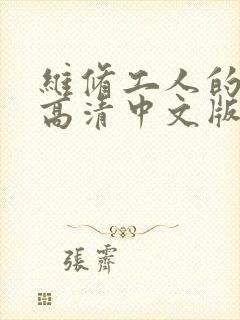 維脩工人的
高清中文版
張霽